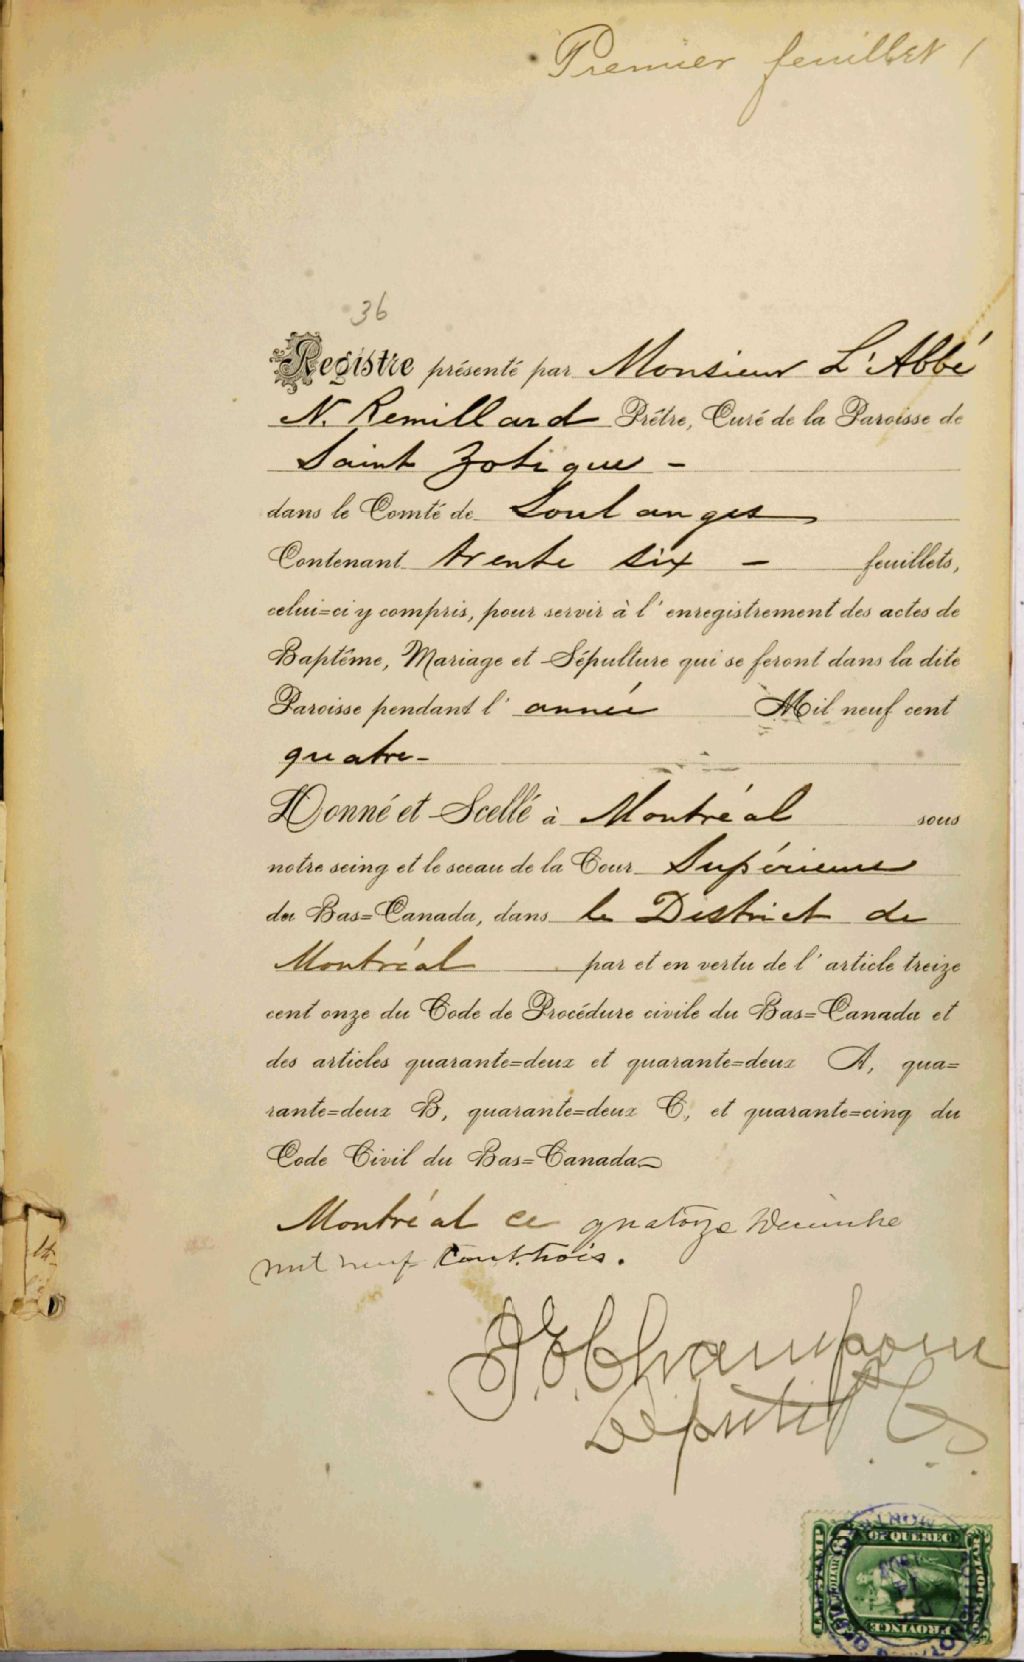 Premier feuillet
36
Registre présenté par Monsieur L'Abbé
N. Remillard Prêtre, Curé de la Paroisse de
Saint Zotique -
dans le Comté de Soulanges
Contenant trente six - feuillets,
celui=ci y compris, pour servir à l'enregistrement des actes de
Baptême, Mariage et Sépulture qui se feront dans la dite
Paroisse pendant l'année Mil neuf cent
quatre-
Donné et Scellé à Montréal sous
notre seing et le sceau de la Cour Supérieure
du Bas=Canada, dans le District de
Montréal par et en vertu de l'article treize
cent onze du Code de Procédure civile du Bas=Canada et
des articles quarante=deux et quarante=deux A, qua=
rante=deux B, quarante=deux C, et quarante=cinq du
Code Civil du Bas=Canada
Montréal ce quatorze Décembre
mil neuf cent trois.
Député P C S
LAW STAMP
OF QUEBEC
PROVINCE